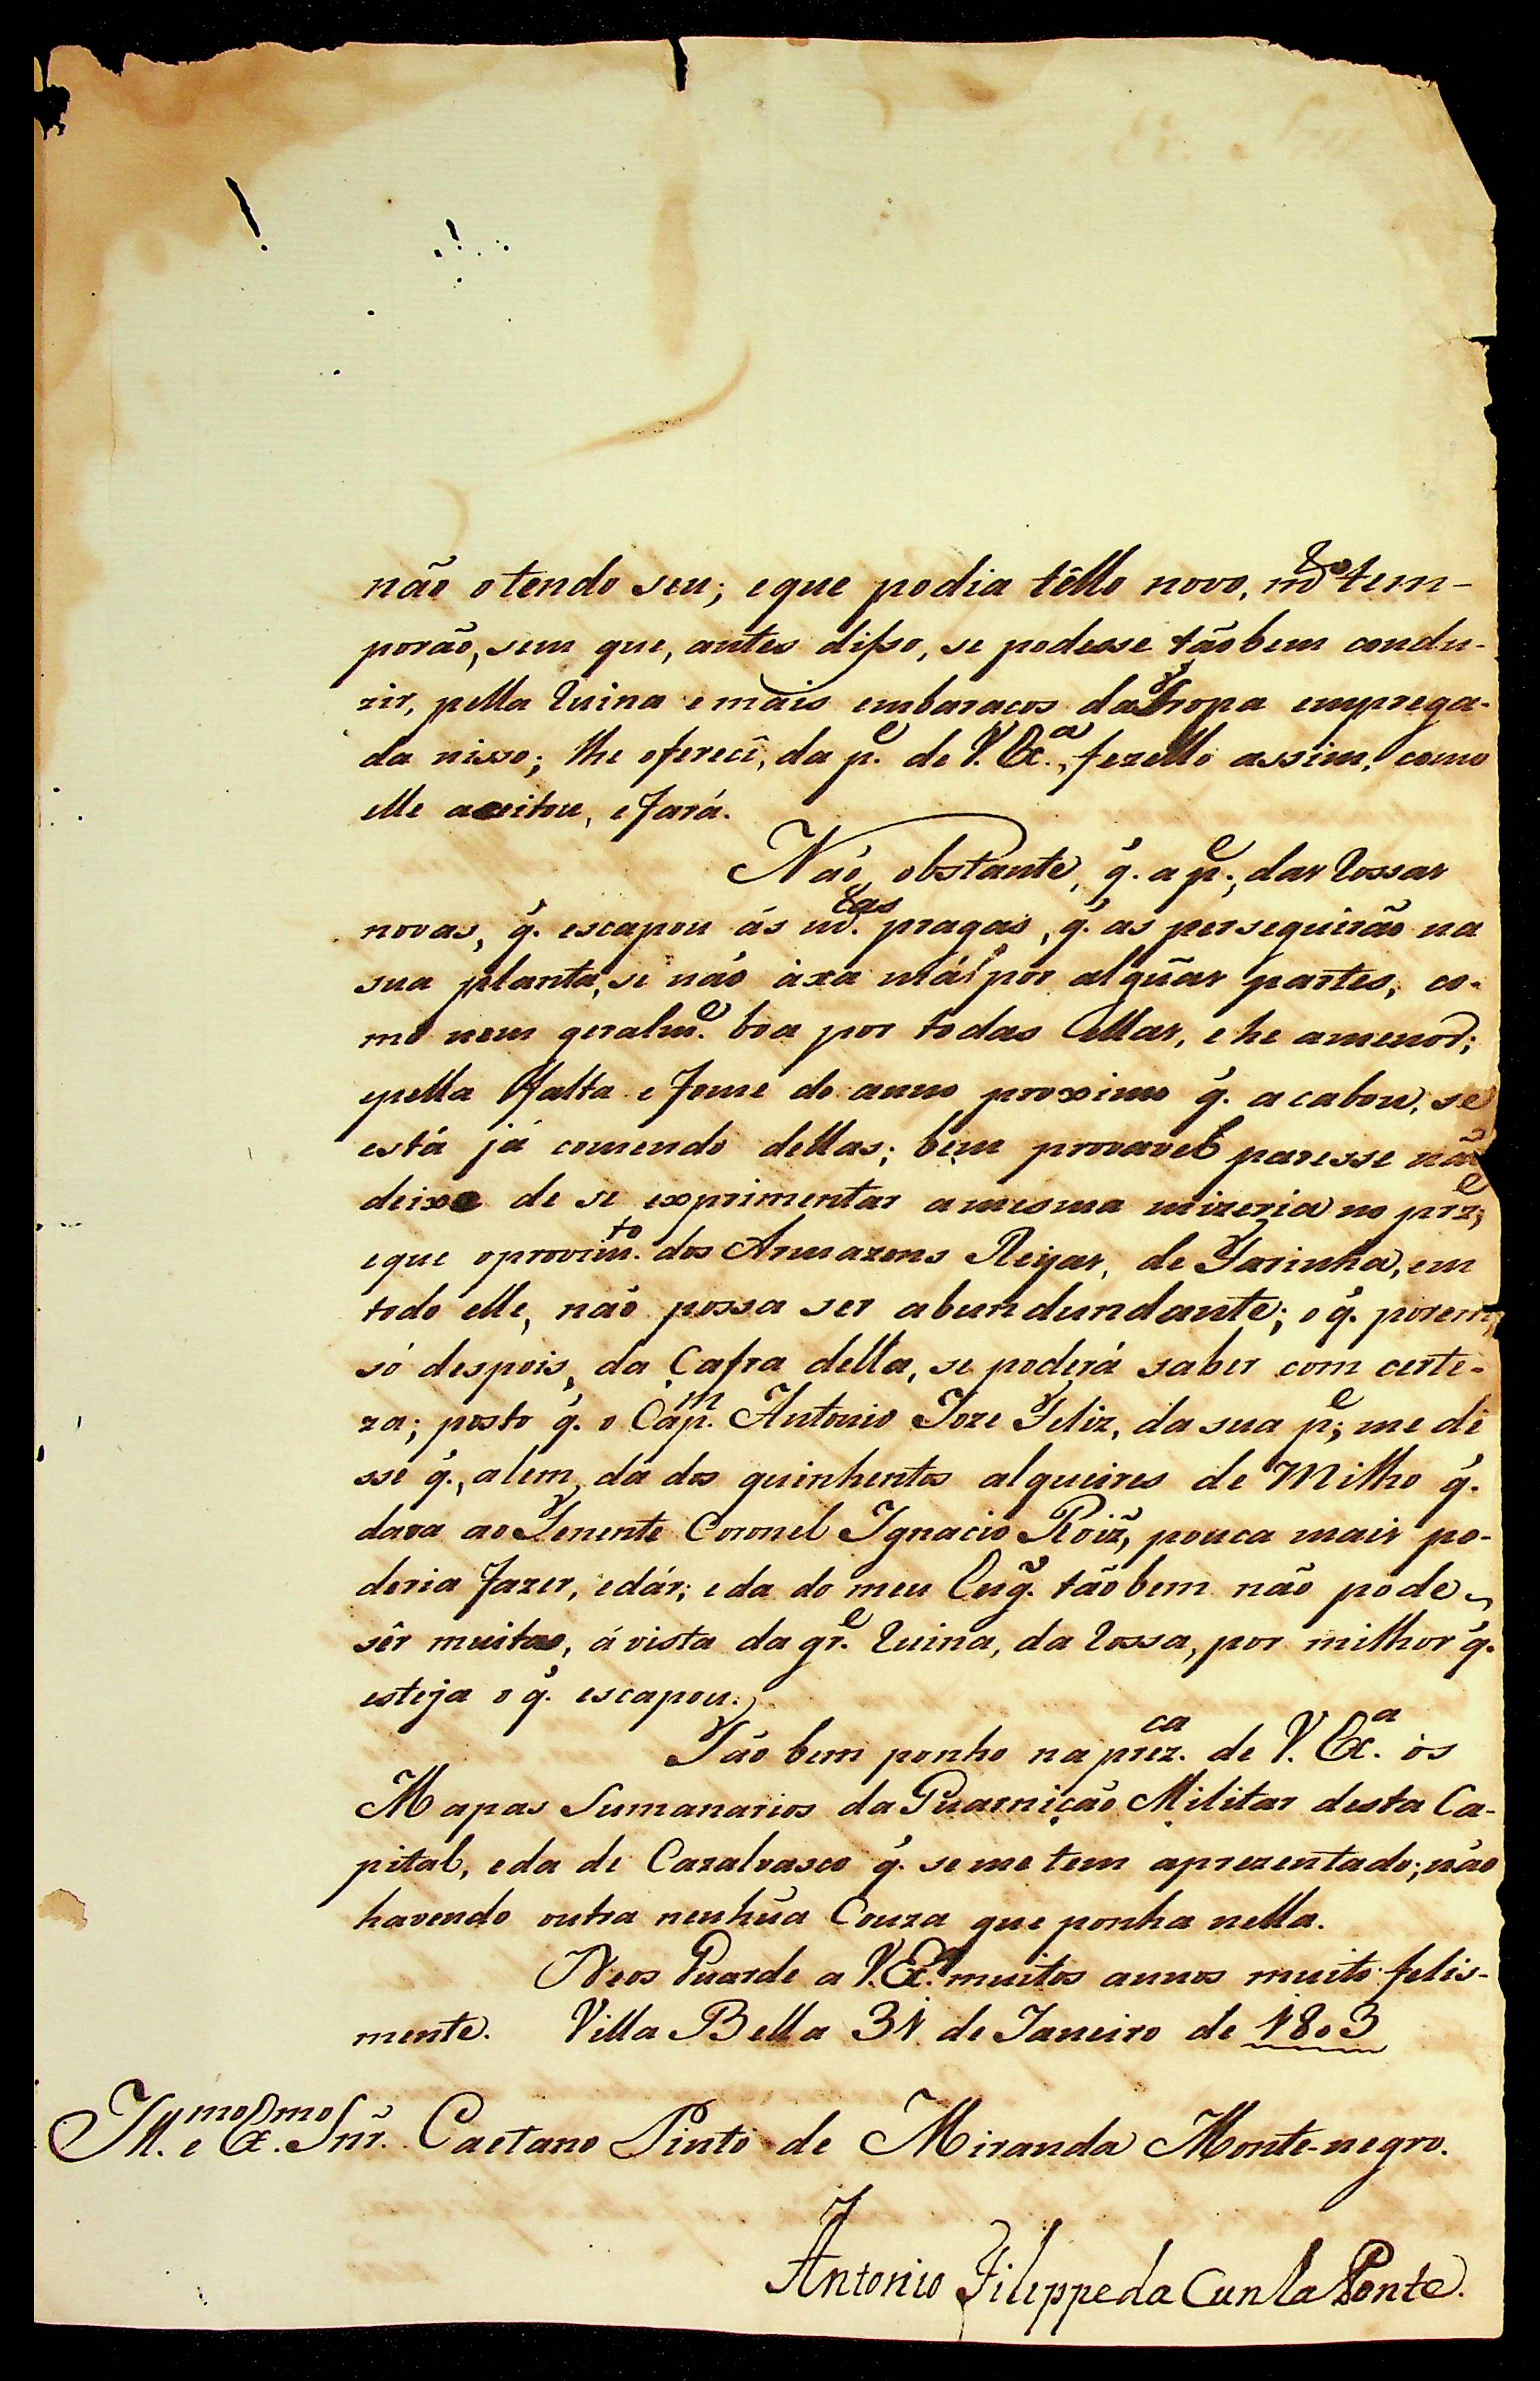 não otendo seu; eque podia têllo novo, m.to tem-
porão, sem que, antes disso, se podesse tãobem condu-
zir, pella Ruina emais embaracos da Tropa emprega-
da nisso; lhe oferecî, da p.e de V. Ex.a, fezello assim, como
elle aceitou, efará.
Não obstante, q. a p.e, das Rossas
novas, q. escapou ás m.tas pragas, q. as perseguirão na
sua planta, se não axa má por algũas partes, co-
mo nem geralm.e boa por todas Ellas, ehe amenor;
epella falta efome do anno proximo q. acabou, se
está já comendo dellas; bem provavel paresse não
deixe de se exprimentar amesma mizeria no prz.e,
eque oprovim.to dos Armazens Reyas, de Farinha, em
todo elle, não possa ser abundundante; oq. porem,
só despois, da Çafra della, se poderá saber com certe-
za; posto q. o Cap.m Antonio Joze Feliz, da sua p.e, me di
sse q., alem, da dos quinhentos alqueires de Milho q.
dava ao Tenente Coronel Ignacio Roiz, pouca mais po-
deria fazer, edár; eda do meu Eng. tãobem não pode
sêr muita, ávista da gr.e Ruina, da Rossa, por milhor q.
esteja oq. escapou.
Tãobem ponho na prez.ca de V. Ex.a os
Mapas Sumanarios da Guarnição Militar desta Ca-
pital, eda de Cazalvasco q. seme tem aprezentado; não
havendo outra nenhũa Couza que ponha nella.
Deos Guarde a V. Ex.a muitos annos muito felis-
mente. Villa Bella 31 de Janeiro de 1803
Ill.mo e Ex.mo Snr. Caetano Pinto de Miranda Monte-negro.
Antonio Filippe da Cunha Ponte.